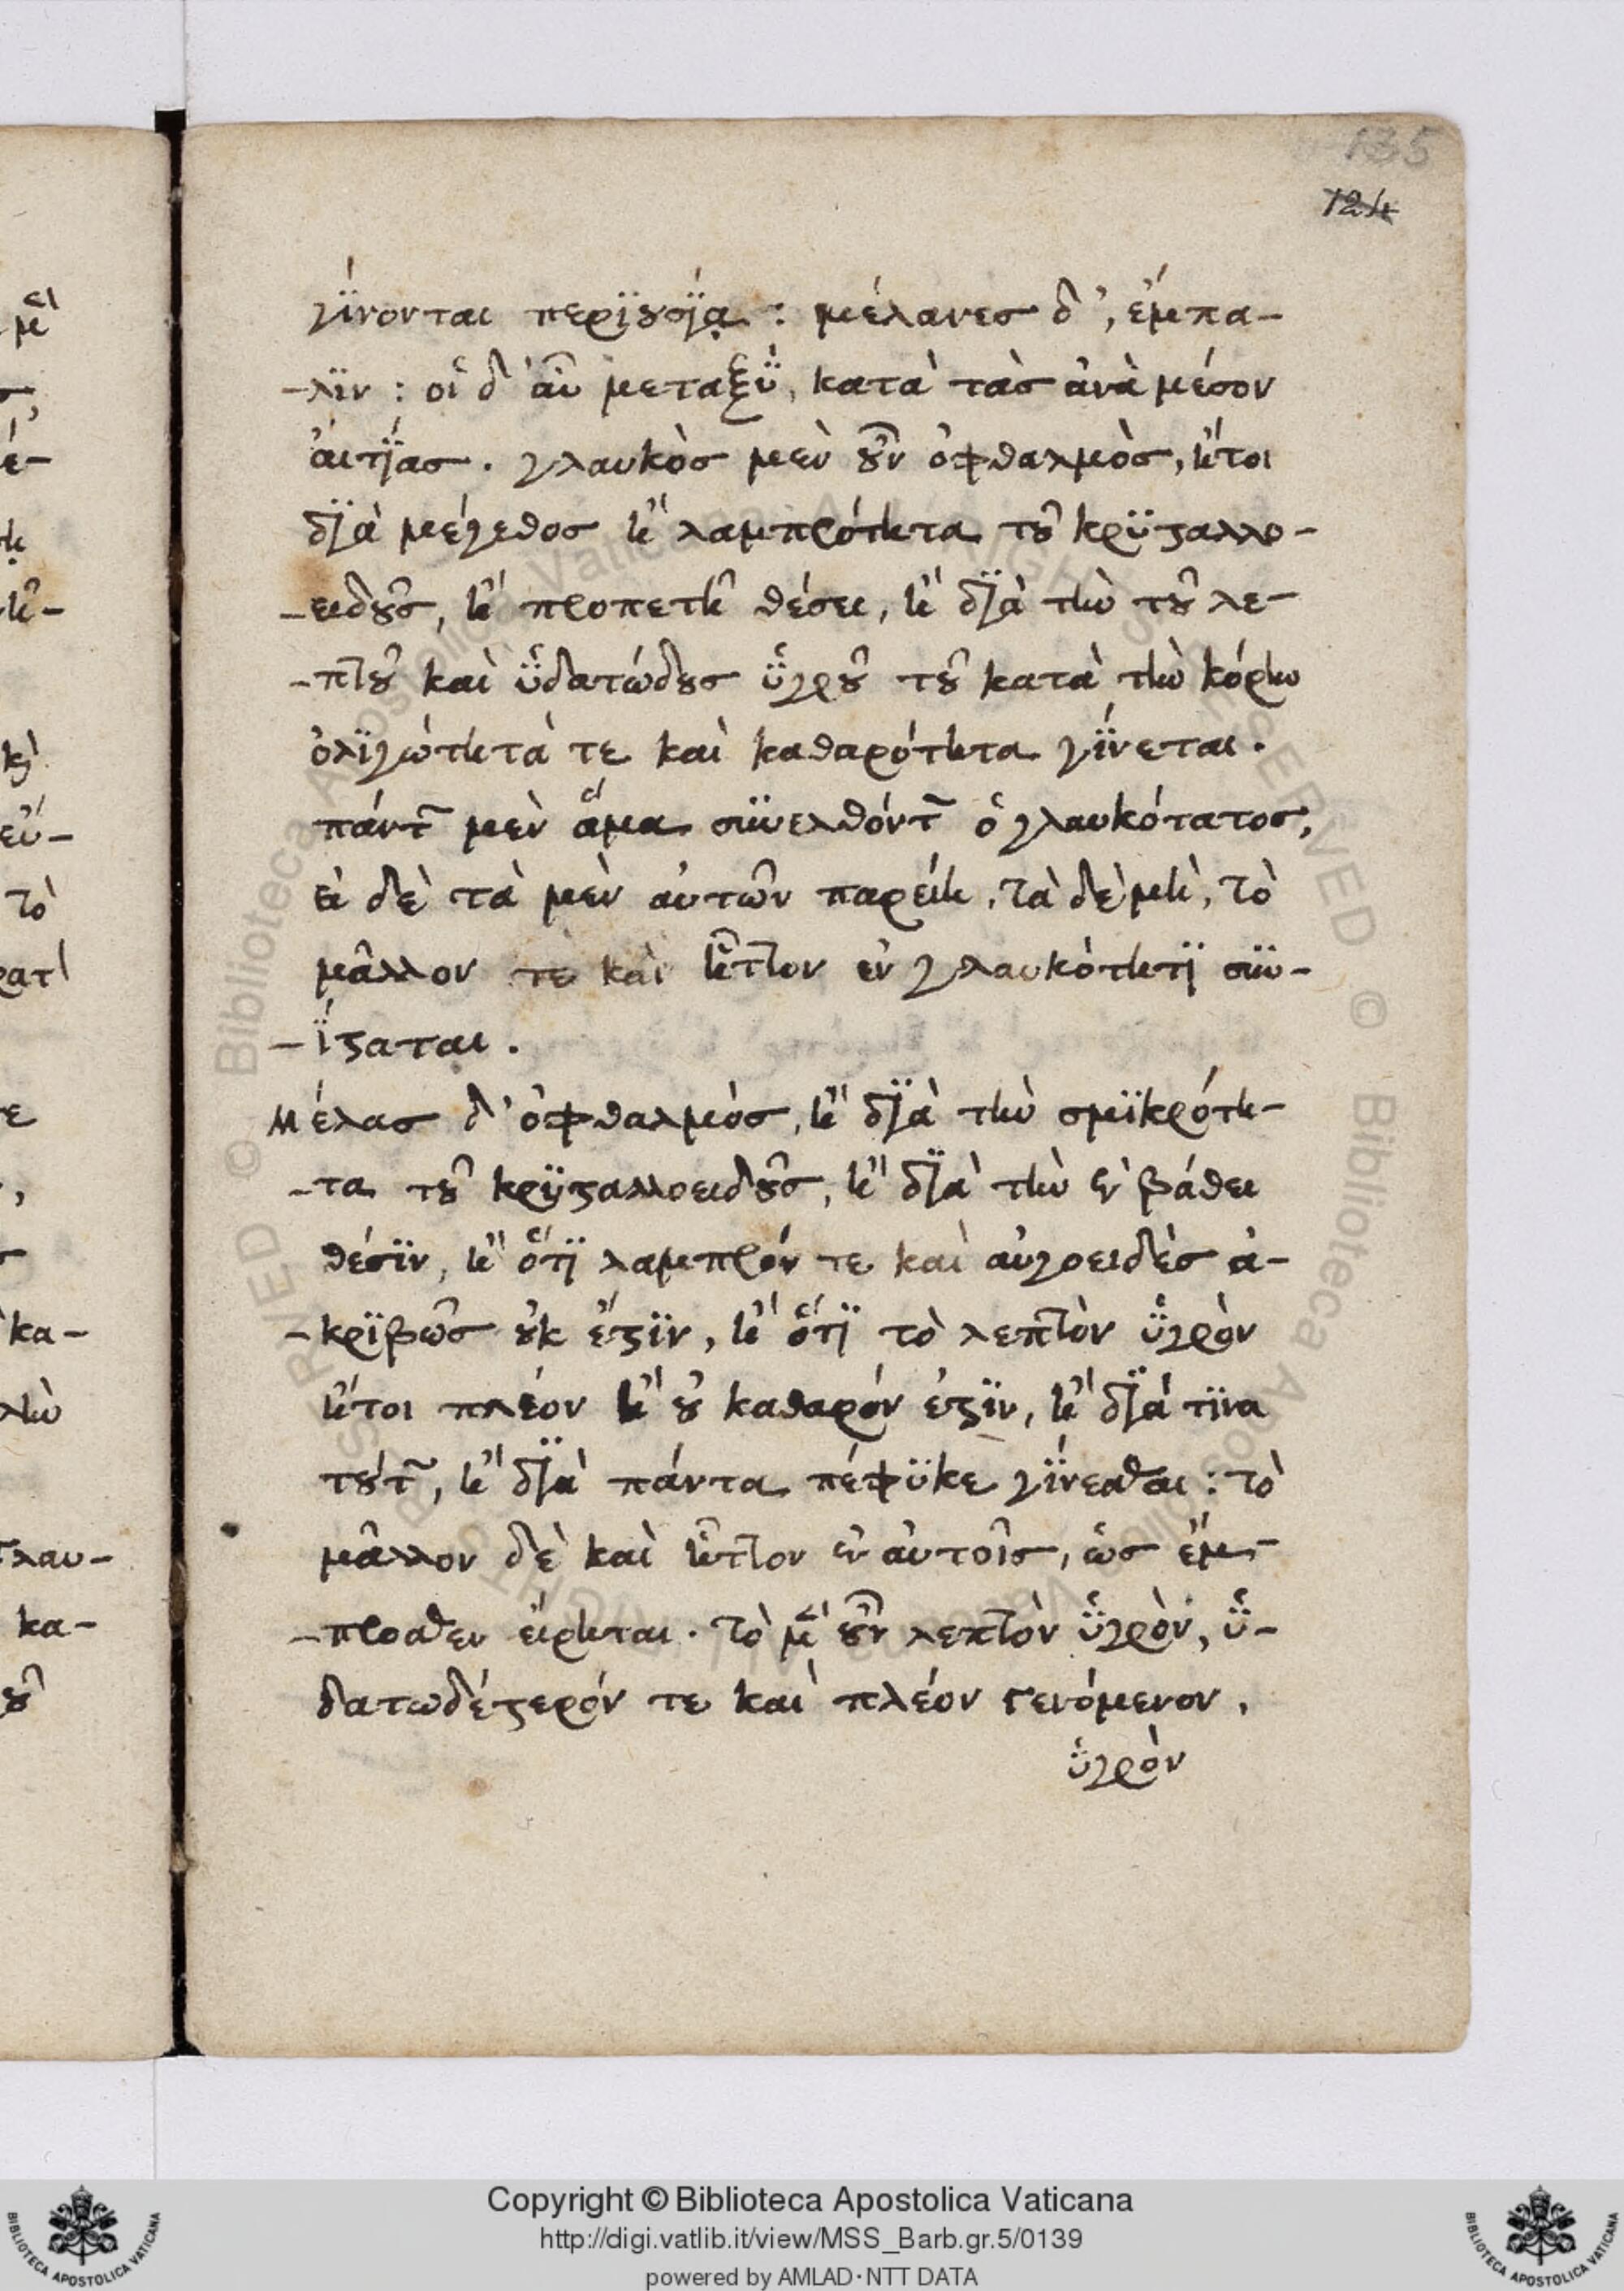 135
124
γίνονται περϊουσίᾳ : μέλανεσ δ', ἔμπα-
-λϊν : οἱ δ' αὖ μεταξὺ, κατὰ τὰσ ἀνὰ μέσον
ἀιτίασ. γλαυκὸσ μὲν οὖν ὀφθαλμὸσ, ἤτοι
δϊὰ μέγεθοσ ἢ λαμπρότητα τοῦ κρϋσταλλο-
-ειδοῦσ, ἢ προπετῆ θέσει, ἢ δϊὰ τὴν τοῦ λε-
-πτοῦ καὶ ὑδατώδουσ ὑγροῦ τοῦ κατὰ τὴν κόρην
ὀλϊγώτητά τε καὶ καθαρότητα γίνεται.
πάντων μὲν ἅμα συνελθόντων ὁ γλαυκότατοσ,
εἰ δὲ τὰ μὲν αὐτῶν παρείη, τὰ δὲ μὴ, τὸ
μᾶλλον τε καὶ ἧττον ἐν γλαυκότητϊ συν-
-ίσταται.
Μέλασ δ' ὀφθαλμὸσ, ἢ δϊὰ τὴν σμϊκρότη-
-τα τοῦ κρϋσταλλοειδοῦσ, ἢ δϊὰ τὴν ἐν βάθει
θέσϊν, ἢ ὅτϊ λαμπρόν τε καὶ αὐγοειδὲσ ἀ-
-κρϊβῶσ οὐκ ἔστϊν, ἢ ὅτϊ τὸ λεπτὸν ὑγρὸν
ἤτοι πλέον ἢ οὐ καθαρόν ἐστϊν, ἢ δϊά τϊνα
τούτων, ἢ δϊὰ πάντα πέφϋκε γίνεσθαι : τὸ
μᾶλλον δὲ καὶ ἧττον ἐν αὐτοῖσ, ὡσ ἔμ-
-προσθεν εἴρηται. τὸ μὲν οὖν λεπτὸν ὑγρὸν, ὑ-
δατωδέστερόν τε καὶ πλέον γενόμενον,
ὑγρὸν
Copyright © Biblioteca Apostolica Vaticana
http://digi.vatlib.it/view/MSS_Barb.gr.5/0139
powered by AMLAD·NTT DATA